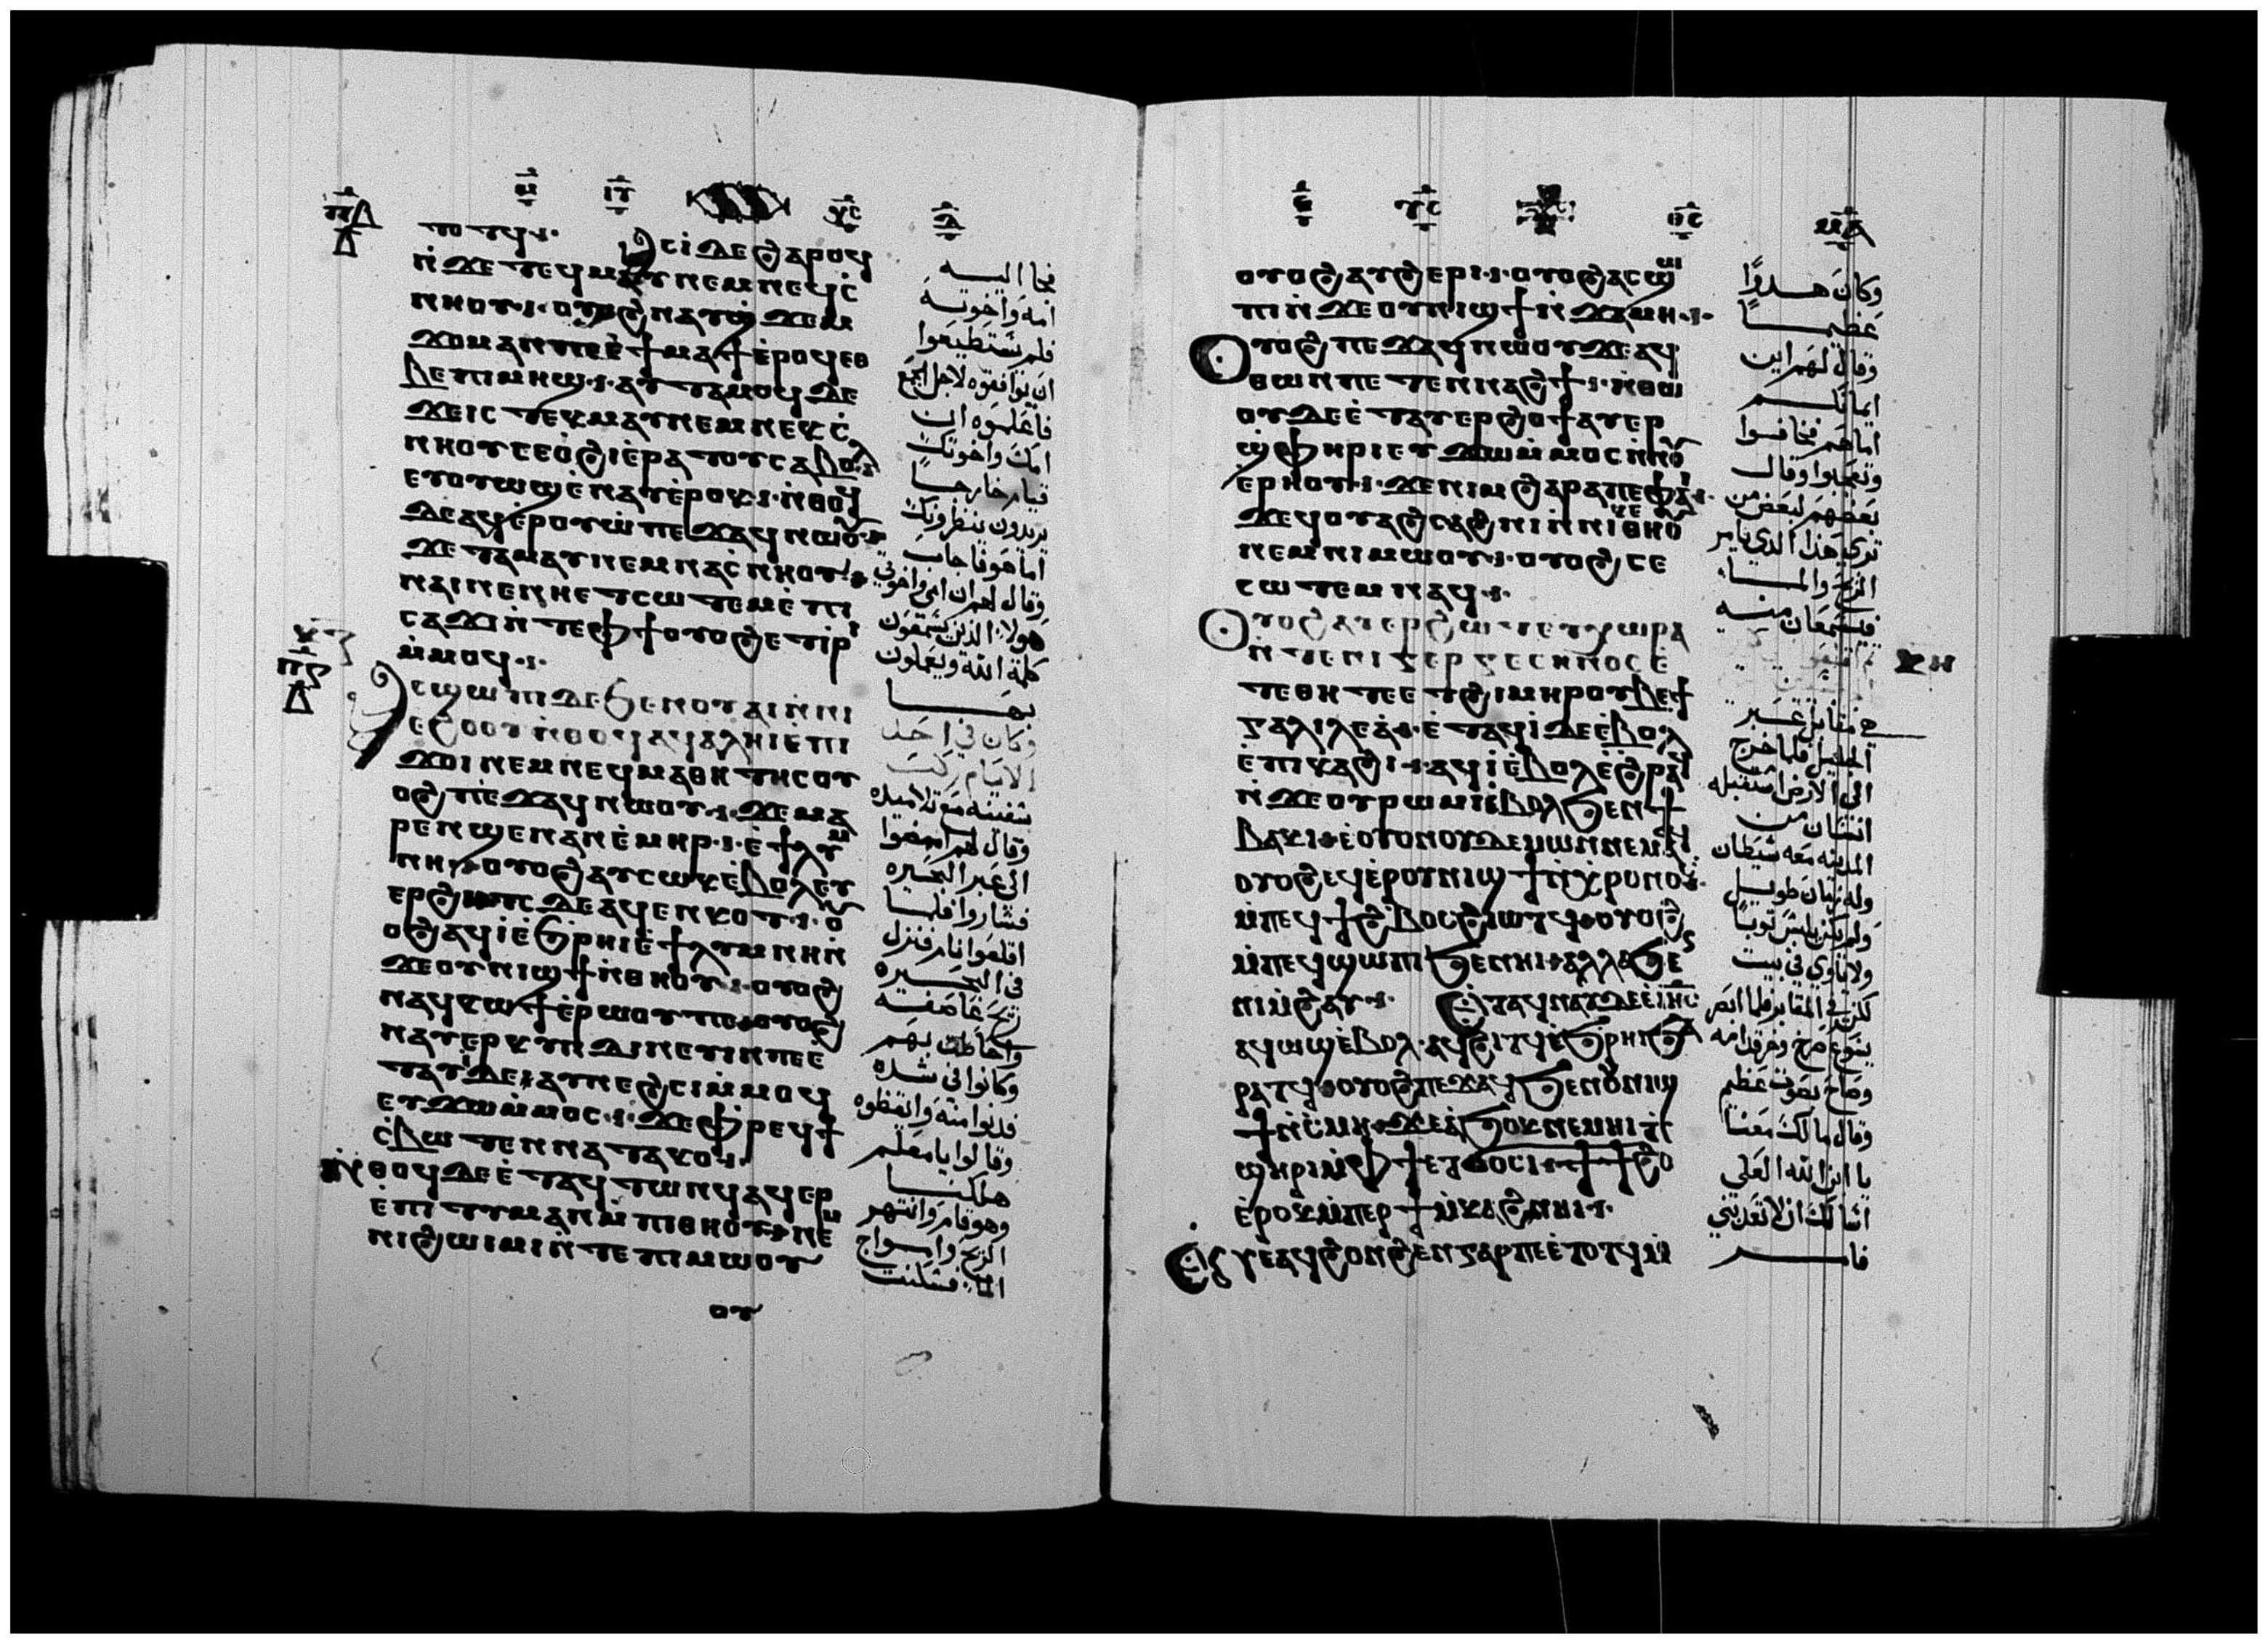 ⲧⲟⲧϥ · ⲁⲥⲓ ⲇⲉ ϩⲁⲣⲟϥ
ⲛ̀ϫⲉ ⲧⲉϥⲙⲁⲩ ⲛⲉⲙ ⲛⲉϥⲥ̀
ⲛⲏⲟⲩ · ⲟⲩⲟϩ ⲛⲁⲩϣ̀ϫⲉⲙ
ϫⲟⲙ ⲁⲛ ⲡⲉ ⲉ̀ϯⲙⲁϯ ⲉ̀ⲣⲟϥ ⲉⲑ
ⲃⲉ ⲡⲓⲙⲏϣ · ⲁⲩⲧⲁⲙⲟϥ ⲇⲉ
ϫⲉ ⲓⲥ ⲧⲉⲕⲙⲁⲩ ⲛⲉⲙ ⲛⲉⲕⲥ̀
ⲛⲏⲟⲩ ⲥⲉⲟ̀ϩⲓ ⲉ̀ⲣⲁⲧⲟⲩ ⲥⲁⲃⲟⲗ
ⲉⲩⲟⲩⲱϣ ⲉ̀ⲛⲁⲩ ⲉ̀ⲣⲟⲕ · ⲛ̀ⲑⲟϥ
ⲇⲉ ⲁϥⲉ̀ⲣⲟⲩⲱ̀ ⲡⲉϫⲁϥ ⲛⲱⲟⲩ
ϫⲉ ⲧⲁⲙⲁⲩ ⲛⲉⲙ ⲛⲁⲥ̀ⲛⲏⲟⲩ
ⲛⲁⲓ ⲛⲉ ⲛⲏⲉⲧⲥⲱⲧⲉⲙ ⲉ̀ⲡⲓ
ⲥⲁϫⲓ ⲛ̀ⲧⲉ ⲫϯ ⲟⲩⲟϩ ⲉⲧⲓⲣⲓ
ⲙ̀ⲙⲟϥ ·
ⲁⲥϣⲱⲡⲓ ⲇⲉ ϧⲉⲛ ⲟⲩⲁⲓ ⲛ̀ⲛⲓ
ⲉϩⲟⲟⲩ ⲛ̀ⲑⲟϥ ⲁϥⲁⲗⲏⲓ ⲉ̀ⲡⲓ
ϫⲟⲓ ⲛⲉⲙ ⲛⲉϥⲙⲁⲑⲏⲧⲏⲥ ⲟⲩ
ⲟϩ ⲡⲉϫⲁϥ ⲛⲱⲟⲩ · ϫⲉ ⲙⲁ
ⲣⲉⲛϣⲉⲛⲁⲛ ⲉ̀ⲙⲏⲣ · ⲉ̀ϯⲗⲩⲙ
ⲛⲏ · ⲟⲩⲟϩ ⲁⲩⲥⲱⲕ ⲉ̀ⲃⲟⲗ ⲉⲩ
ⲉⲣϩⲱⲧ ⲇⲉ ⲁϥⲉⲛⲕⲟⲧ · ⲟⲩ
ⲟϩ ⲁϥⲓ̀ ⲉ̀ϧⲣⲏⲓ ⲉ̀ϯⲗⲩⲙⲛⲏ ⲛ̀
ϫⲉ ⲟⲩⲛⲓϣϯ ⲛ̀ⲑⲏⲟⲩ · ⲟⲩⲟϩ
ⲛⲁϥⲕⲱϯ ⲉ̀ⲣⲱⲟⲩ ⲡⲉ · ⲟⲩⲟϩ
ⲛⲁⲩⲉⲣⲕⲩⲛⲇⲓⲛⲉⲩⲓⲛ ⲡⲉ ⲉ̀
ⲧⲁⲩⲓ̀ ⲇⲉ ⲁⲩⲛⲉϩⲥⲓ ⲙ̀ⲙⲟϥ
ⲉⲩϫⲱ ⲙ̀ⲙⲟⲥ · ϫⲉ ⲫⲣⲉϥϯ
ⲥ̀ⲃⲱ ⲧⲉⲛⲛⲁⲧⲁⲕⲟ ·
ⲛ̀ⲑⲟϥ ⲇⲉ ⲉ̀ⲧⲁϥⲧⲱⲛϥ ⲁϥⲉⲣ
ⲉ̀ⲡⲓⲧⲓⲙⲁⲛ ⲙ̀ⲡⲓⲑⲏⲟⲩ · ⲛⲉⲙ
ⲛⲓϩⲱⲓⲙⲓ ⲛ̀ⲧⲉ ⲡⲓⲙⲱⲟⲩ
ⲟⲩ
فجا اليه
امه واخوته
فلم يستطيعوا
ان يوافقوه لاجل الجمع
فاعلموه ان
امك واخوتك
قيام خارجا
يريدون ينظرونك
اما هو فاجاب
وقال لهم ان امي واخوتي
هولاء الذين يسمعون
كلمة الله ويعملون
بها
وكان في احد
الايام ركب
سفينه مع تلاميذه
وقال لهم امضوا
الى عبر البحيره
فساروا فلما
اقلعوا نام فنزل
في البحيره
ريح عاصفه
واحاطت بهم
وكانوا في شده
فدنوا منه وايقظوه
وقالوا يا معلم
هلكنا
وهو قام وانتهر
الريح وامواج
الماء فسكنت
ⲟⲩⲟϩ ⲁⲩϩⲉⲣⲓ · ⲟⲩⲟϩ ⲁⲥϣⲱ
ⲡⲓ ⲛ̀ϫⲉ ⲟⲩⲛⲓϣϯ ⲛ̀ϫⲁⲙⲏ ·
ⲟⲩⲟϩ ⲡⲉϫⲁϥ ⲛⲱⲟⲩ ϫⲉ ⲁϥ
ⲑⲱⲛ ⲡⲉⲧⲉⲛⲛⲁϩϯ · ⲛ̀ⲑⲱ
ⲟⲩ ⲇⲉ ⲉ̀ⲧⲁⲩⲉⲣϩⲟϯ ⲁⲩⲉⲣ
ϣ̀ⲫⲏⲣⲓ ⲉⲩϫⲱ ⲙ̀ⲙⲟⲥ ⲛ̀ⲛⲟⲩ
ⲉ̀ⲣⲏⲟⲩ · ϫⲉ ⲛⲓⲙ ϩⲁⲣⲁ ⲡⲉ ⲫⲁⲓ
ϫⲉ ϥⲟⲩⲁϩⲥⲁϩⲛⲓ ⲛ̀ⲛⲓⲕⲉⲑⲏⲟⲩ
ⲛⲉⲙ ⲛⲓⲙⲱⲟⲩ · ⲟⲩⲟϩ ⲥⲉ
ⲥⲱⲧⲉⲙ ⲛⲁϥ ·
ⲟⲩⲟϩ ⲁⲩⲉⲣϩⲱⲧ ⲉ̀ⲧⲭⲱⲣⲁ
ⲛ̀ⲧⲉ ⲛⲓⲅⲉⲣⲅⲉⲥⲏⲛⲟⲥ ⲉ̀
ⲧⲉ ⲑⲏ ⲧⲉ ⲉⲧϩⲓⲙⲏⲣ ⲟⲩⲃⲉ ϯ
ⲅⲁⲗⲓⲗⲉⲁ̀ · ⲉ̀ⲧⲁϥⲓ̀ ⲇⲉ ⲉ̀ⲃⲟⲗ
ⲉ̀ⲡⲓⲕⲁϩⲓ · ⲁϥⲓ̀ ⲉ̀ⲃⲟⲗ ⲉ̀ϩⲣⲁϥ
ⲛ̀ϫⲉ ⲟⲩⲣⲱⲙⲓ ⲉ̀ⲃⲟⲗ ϧⲉⲛ ϯ
ⲃⲁⲕⲓ · ⲉ̀ⲟⲩⲟⲛ ⲟⲩⲇⲉⲙⲱⲛ ⲛⲉⲙⲁϥ
ⲟⲩⲟϩ ⲉϥⲉ̀ⲣ ⲟⲩⲛⲓϣϯ ⲛ̀ⲭⲣⲟⲛⲟⲥ ·
ⲙ̀ⲡⲉϥϯ ϩⲃⲟⲥ ϩⲓⲱⲧϥ · ⲟⲩⲟϩ
ⲙ̀ⲡⲉϥϣⲱⲡⲓ ϧⲉⲛ ⲏⲓ · ⲁⲗⲗⲁ ϧⲉⲛ
ⲛⲓⲙ̀ϩⲁⲩ · ⲉ̀ⲧⲁϥⲛⲁⲩ ⲇⲉ ⲉ̀ⲓⲏⲥ
ⲁϥⲱϣ ⲉ̀ⲃⲟⲗ · ⲁϥϩⲓⲧϥ ⲉ̀ϧⲣⲏⲓ ϧⲁ
ⲣⲁⲧϥ · ⲟⲩⲟϩ ⲡⲉϫⲁϥ ϧⲉⲛ ⲟⲩⲛⲓϣ
ϯ ⲛ̀ⲥ̀ⲙⲏ · ϫⲉ ⲁ̀ϧⲟⲕ ⲛⲉⲙⲏⲓ ⲓⲏⲥ
ϣⲏⲣⲓ ⲙ̀ⲫϯ ⲉⲧϭⲟⲥⲓ · ϯϯϩⲟ
ⲉ̀ⲣⲟⲕ ⲙ̀ⲡⲉⲣϯⲙ̀ⲕⲁϩ ⲛⲏⲓ ·
ⲛⲉ ⲁϥϩⲟⲛϩⲉⲛ ⲅⲁⲣ ⲡⲉ ⲉ̀ⲧⲟⲧϥ ⲙ̀
وكان هدوا
عظيما
وقال لهم اين
ايمانكم
اما هم فخافوا
وتعجبوا وقال
بعضهم لبعض من
ترى هذا الذي يامر
الريح والماء
فيسمعان منه
في مقابل عبر
الجليل فلما خرج
الى الارض استقبله
انسان من
المدينه معه شيطان
وله زمان طويل
ولم يكن يلبس ثوبا
ولا ياوي في بيت
لكن في المقابر فلما ابصر
يسوع صرخ وخر قدامه
وصاح بصوت عظيم
وقال مالك معنا
يا ابن الله العلي
اسالك ان لا تعذبني
فامر